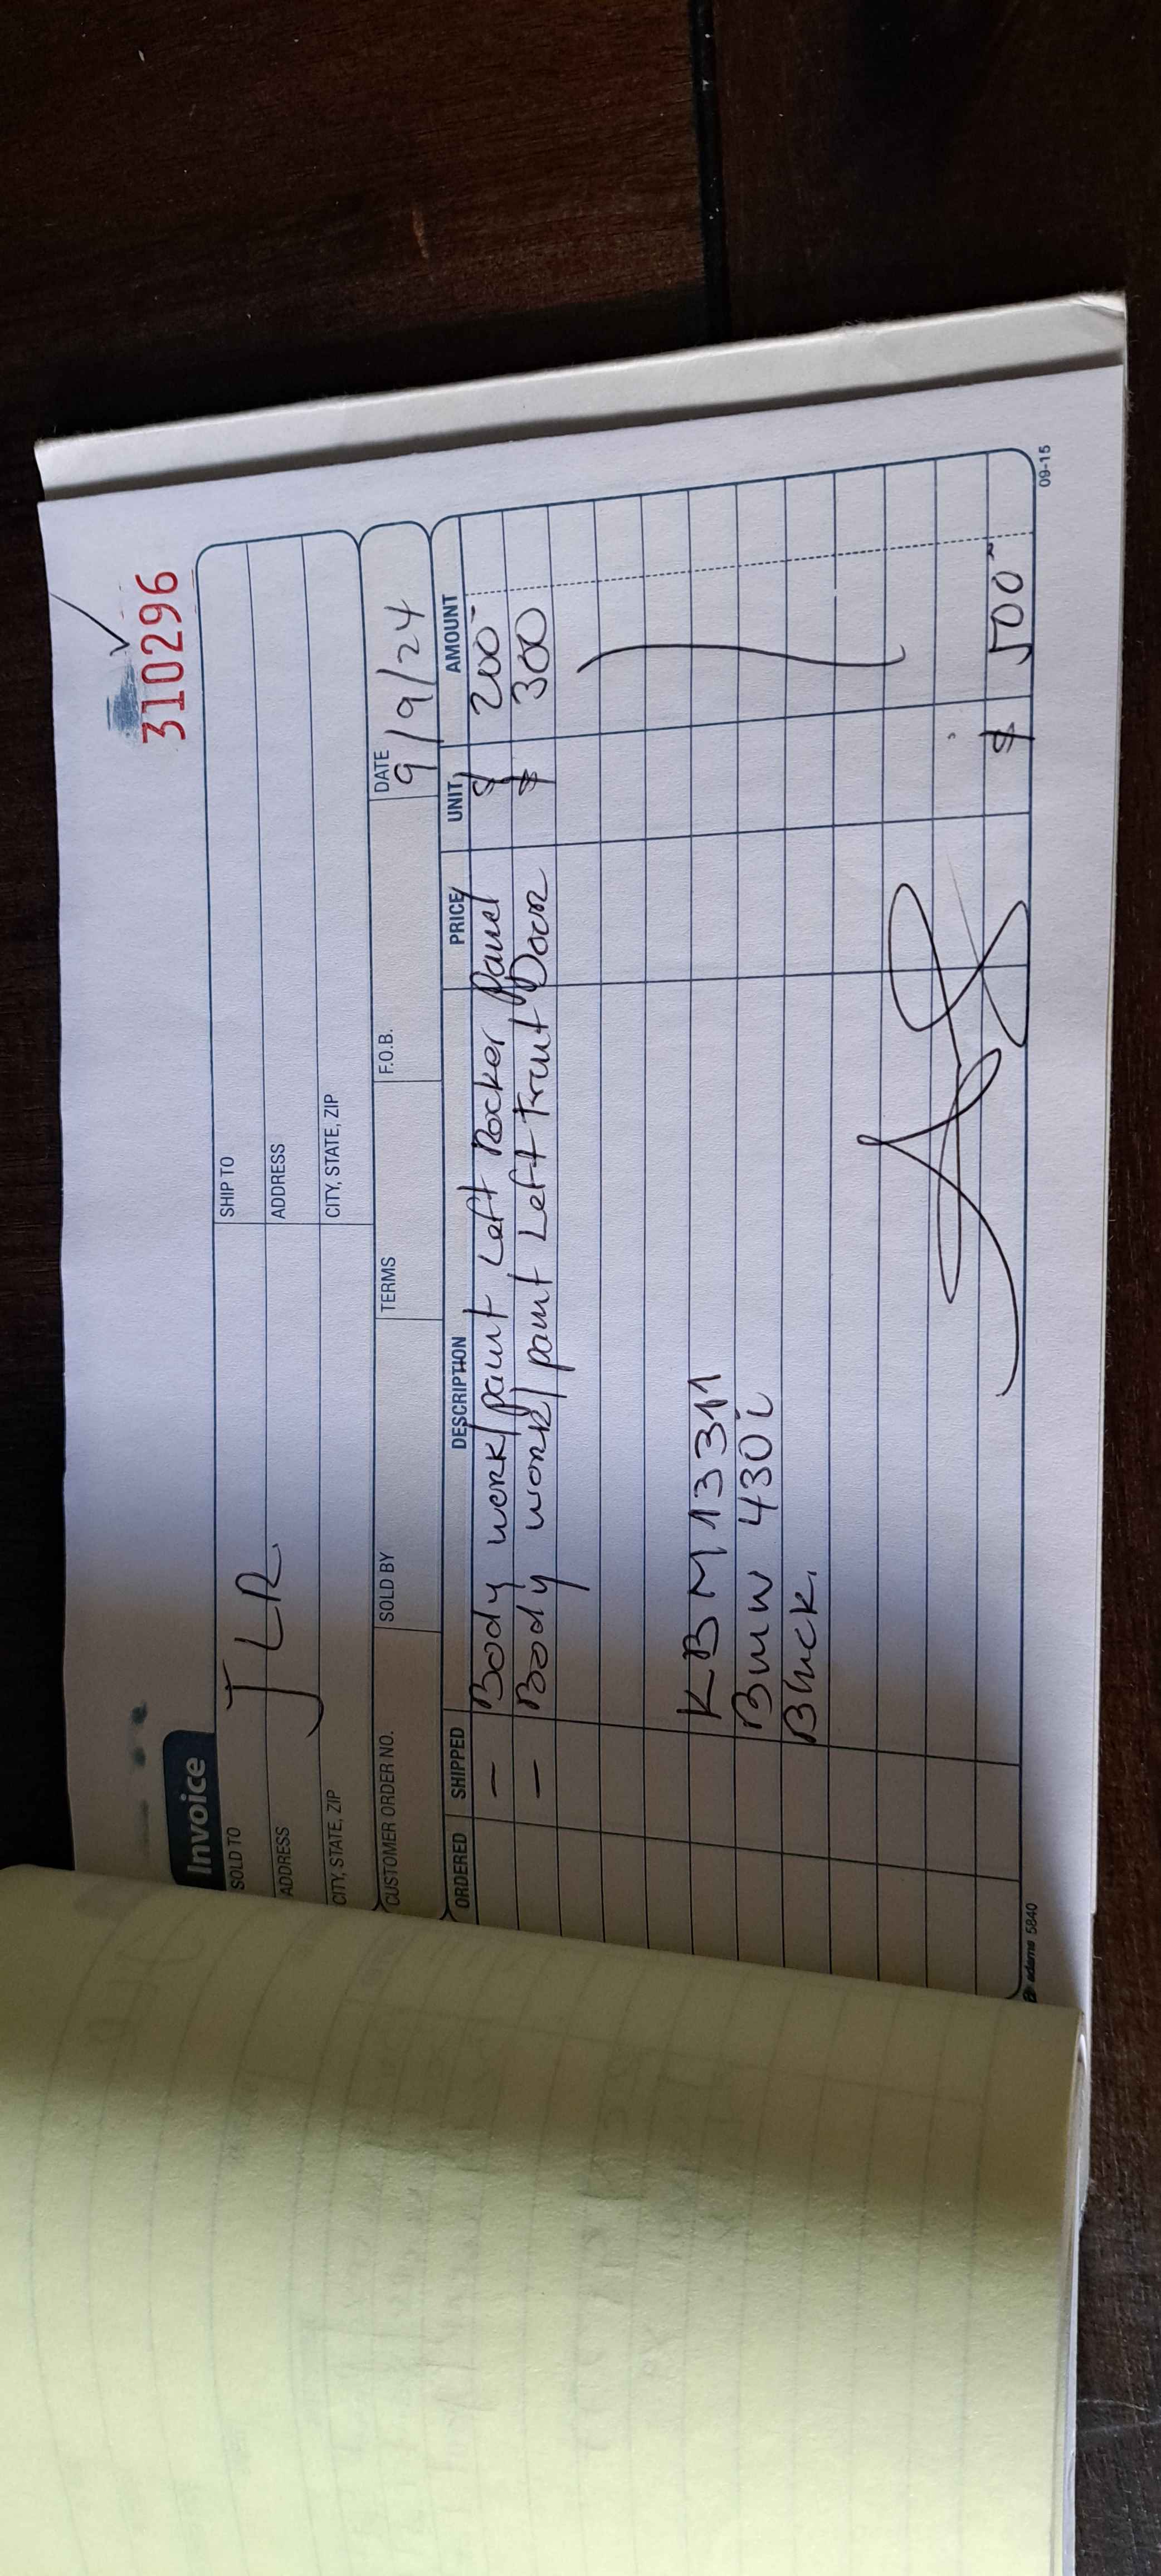 310296
Invoice
SOLD TO JLR SHIP TO
ADDRESS ADDRESS
CITY, STATE, ZIP CITY, STATE, ZIP
CUSTOMER ORDER NO. SOLD BY TERMS F.O.B. DATE 9/9/24
ORDERED SHIPPED DESCRIPTION PRICE UNIT AMOUNT
— Body work/paint Left Rocker Panel $ 200-
— Body work/paint Left Front Door $ 300
KBM1331
BMW 430i
Black.
$ 500
adams 5840 09-15